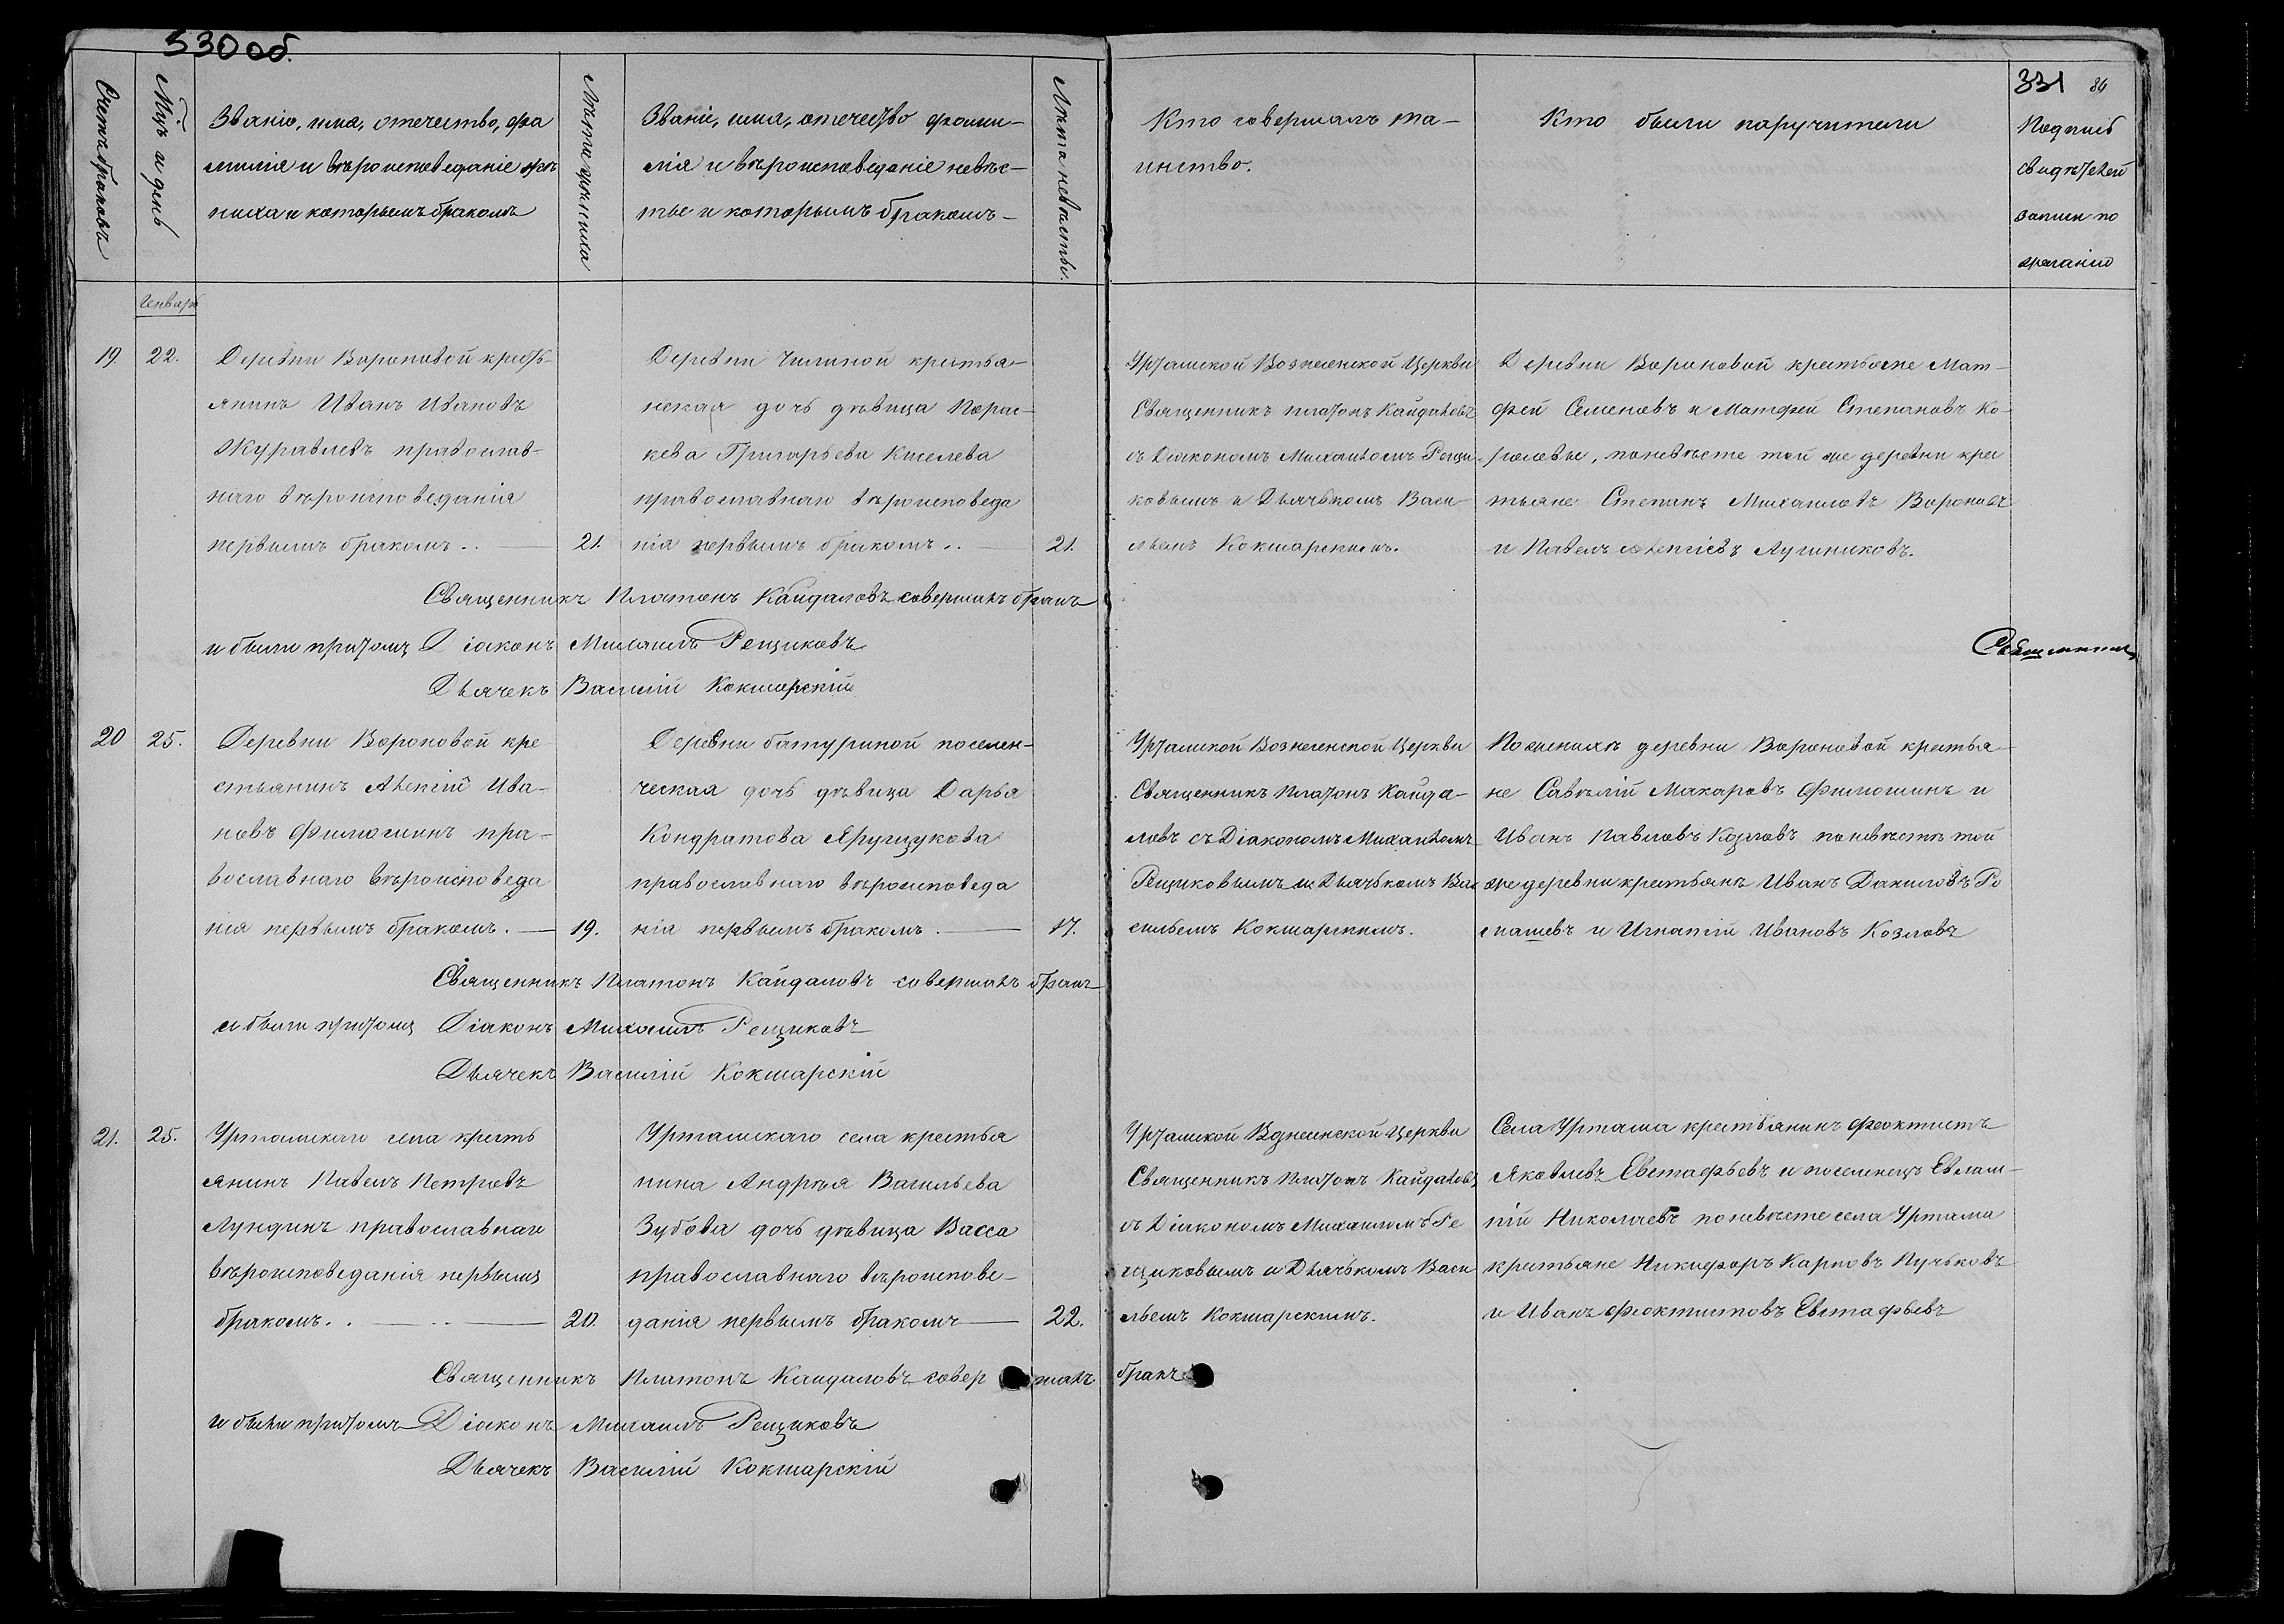 330 об.
331 86
Счетъ браковъ
Мцъ и день
Званіе, имя, отечество, фа
милія и вѣроисповеданіе же
ниха и которымъ бракомъ
Лѣта жениха
Званіе, имя, отечество фами-
лія и вѣроисповеданіе невѣс-
ты и которымъ бракомъ-
Лѣта невѣсты.
Кто совершалъ та-
инство.
Кто были поручители
Подпись
свидѣтелей
записи по
желанію
Генварь
19. 22.
Деревни Вороновой кресть-
янинъ Иванъ Ивановъ
Журавлевъ православ-
наго вѣроисповеданія
первымъ бракомъ.. — 21.
Деревни Чилиной крестья-
нская дочь дѣвица Парас-
кева Григорьева Киселева
православнаго вѣроисповеда
нія первымъ бракомъ.. — 21.
Уртамской Вознесенской Церкви
Священникъ Платонъ Кайдаловъ
съ Діакономъ Михаиломъ Рещи-
ковымъ и Дьячькомъ Васи-
льемъ Кокшарскимъ.
Деревни Вороновой крестьяне Мат-
фей Семеновъ и Матфей Степановъ Ко-
, поневѣсте той же деревни крес
тьяне Степанъ Михаиловъ Вороновъ
и Павелъ Лушниковъ.
Священникъ Платонъ Кайдаловъ совершалъ бракъ
и были притомъ Діаконъ Михаилъ Рещиковъ
Дьячекъ Василій Кокшарскій
Священникъ
20 25.
Деревни Вороновой кре
стьянинъ Алексій Ива-
новъ Филюшинъ пра-
вославнаго вѣроисповеда
нія первымъ бракомъ. — 19.
Деревни батуриной поселен-
ческая дочь дѣвица Дарья
Кондратова
православнаго вѣроисповеда
нія первымъ бракомъ. — 17.
Уртамской Вознесенской Церкви
Священникъ Платонъ Кайда-
ловъ съ Діакономъ Михаиломъ
Рещиковымъ и Дьячькомъ Ва
сильемъ Кокшарскимъ.
Поженихѣ деревни Вороновой крестья-
не Савелій Макаровъ Филюшинъ и
Иванъ Павловъ Козловъ поневѣстѣ той
же деревни крестьянъ Иванъ Даниловъ Ро
машевъ и Игнатій Ивановъ Козловъ
Священникъ Платонъ Кайдаловъ совершалъ бракъ
и были притомъ Діаконъ Михаилъ Рещиковъ
Дьячекъ Василій Кокшарскій
21. 25.
Уртамскаго села кресть
янинъ Павелъ Петровъ
Лундинъ православнаго
вѣроисповеданія первымъ
бракомъ.. — 20.
Уртамскаго села крестья
нина Андрея Васильева
Зубова дочь дѣвица Васса
православнаго вѣроиспове-
данія первымъ бракомъ — 22.
Уртамской Вознесенской Церкви
Священникъ Платонъ Кайдаловъ
съ Діакономъ Михаиломъ Ре
щиковымъ и Дьячькомъ Васи
льемъ Кокшарскимъ.
Села Уртама крестьянинъ Феоктистъ
Яковлевъ Евстафьевъ и поселенецъ Евлам-
пій Николаевъ поневѣсте села Уртама
крестьяне Никифоръ Карповъ Пучьковъ
и Иванъ Феоктистовъ Евстафьевъ
Священникъ Платонъ Кайдаловъ совер шалъ бракъ
и были притомъ Діаконъ Михаилъ Рещиковъ
Дьячекъ Василій Кокшарскій